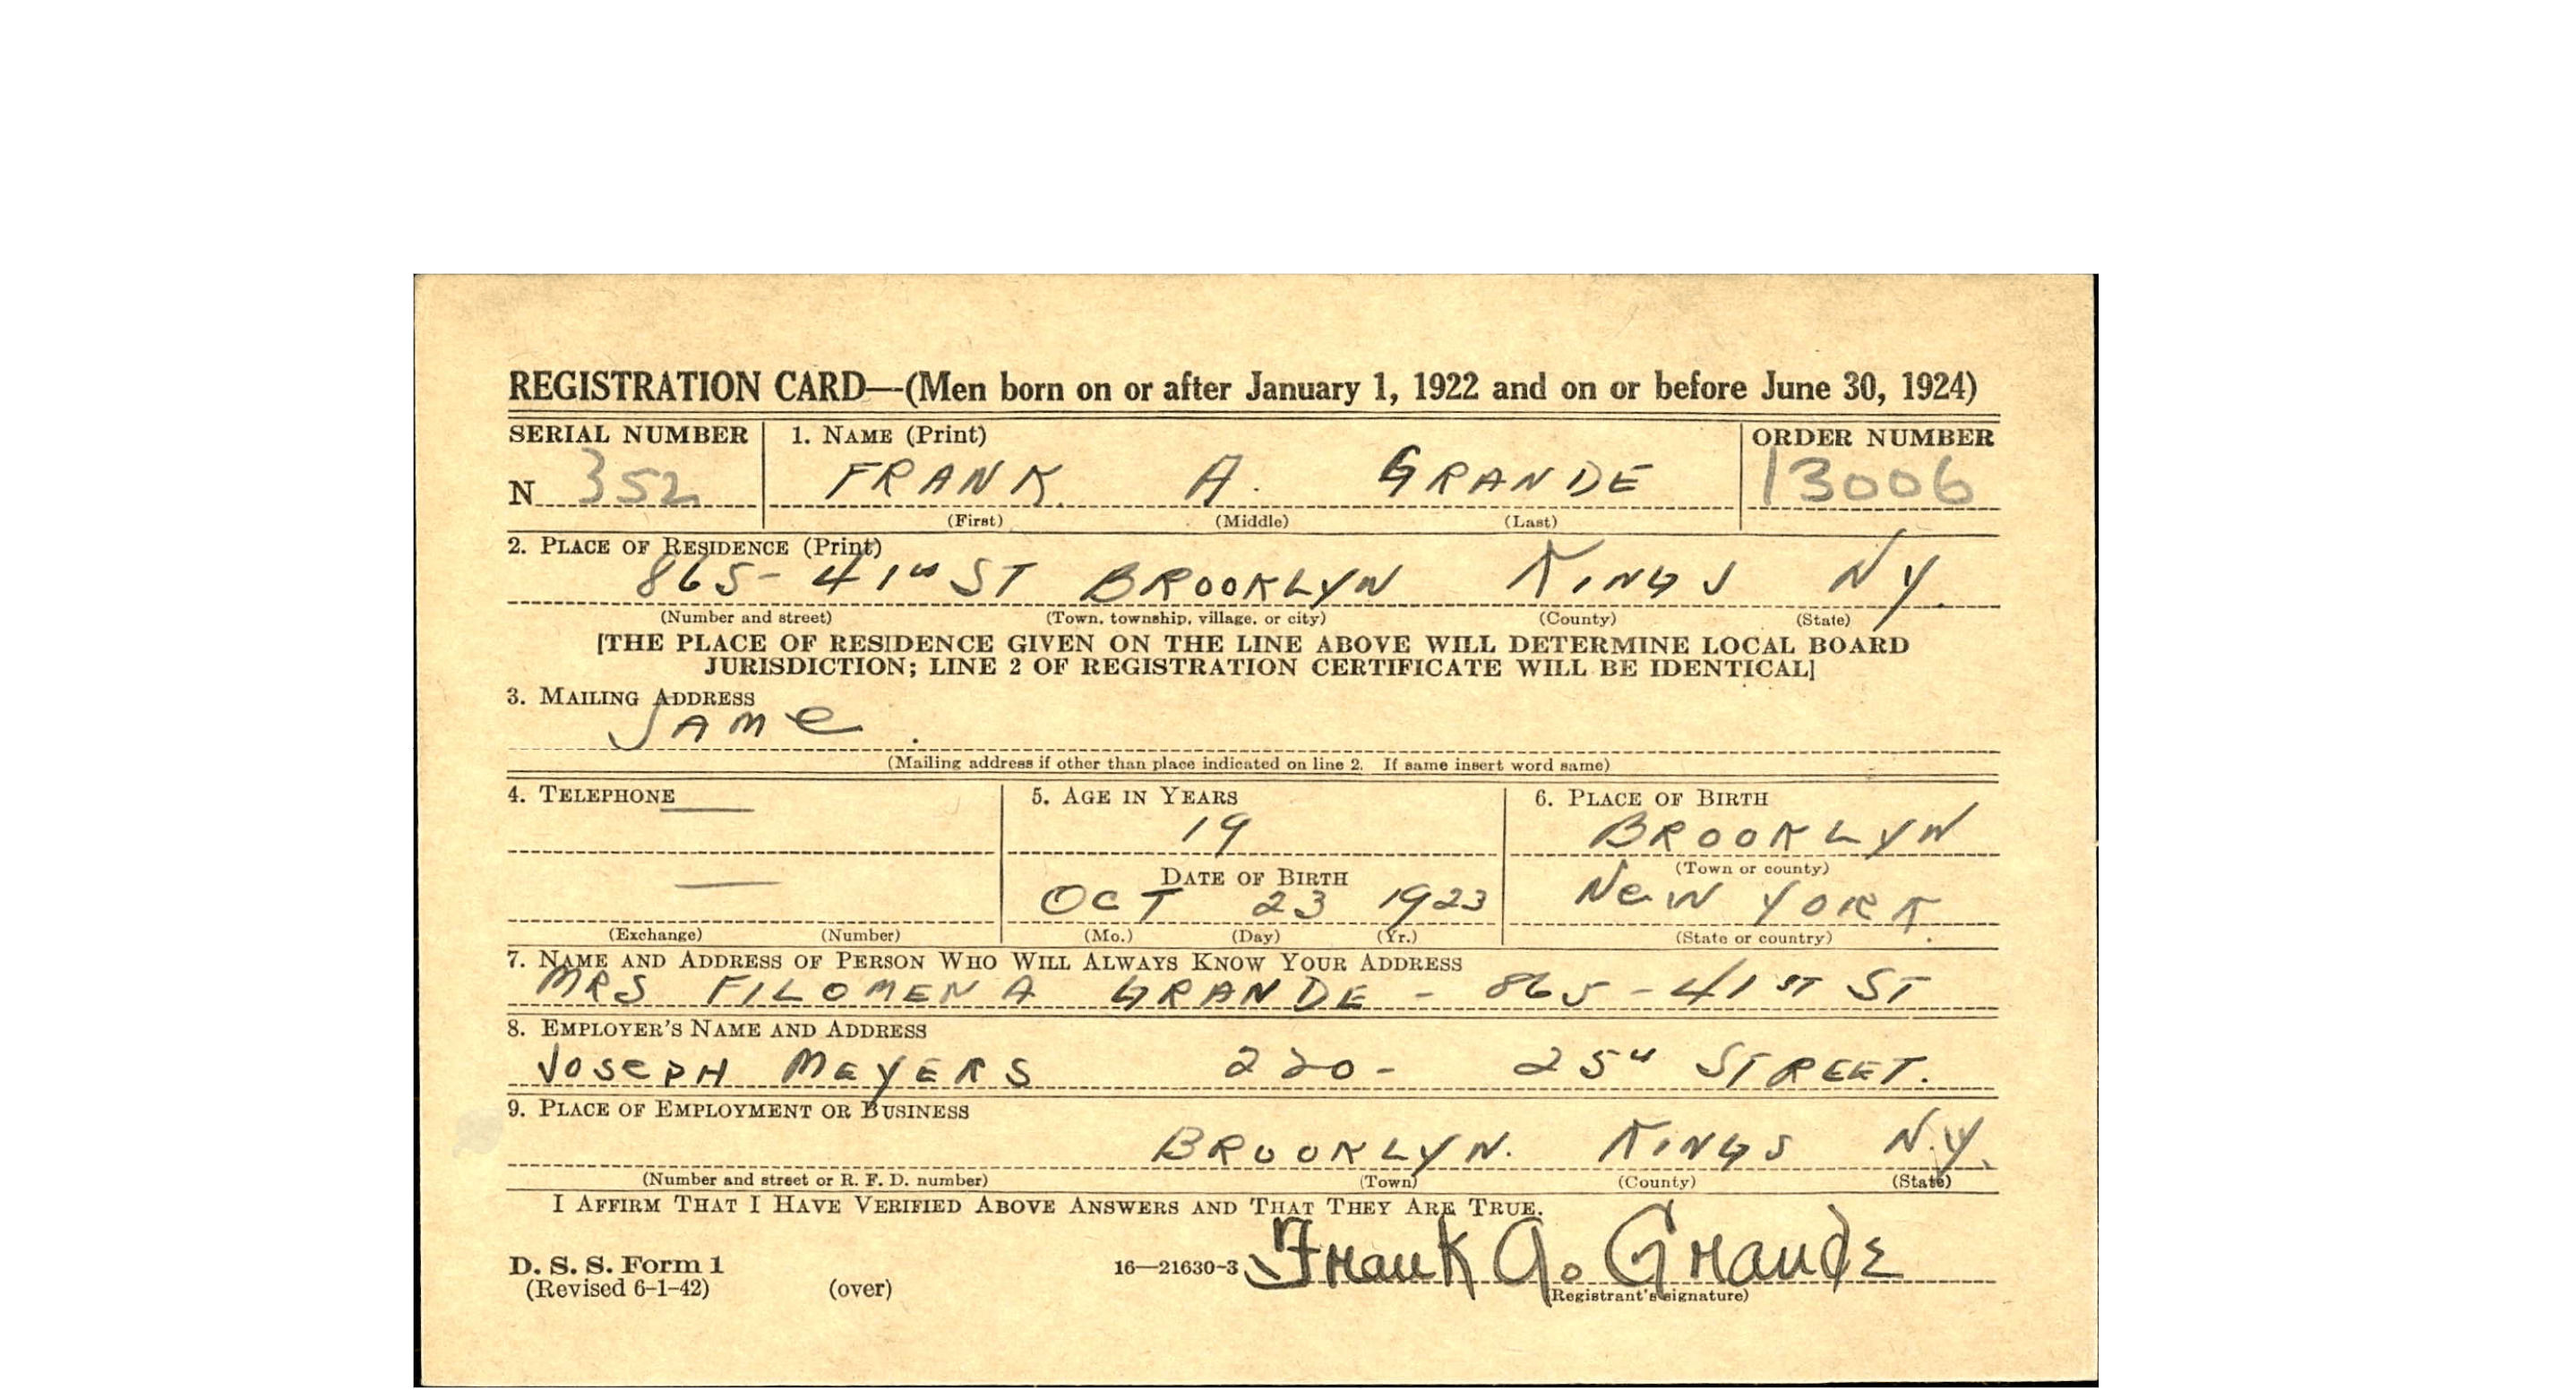 REGISTRATION CARD—(Men born on or after January 1, 1922 and on or before June 30, 1924)
SERIAL NUMBER 1. NAME (Print) ORDER NUMBER
N 352 FRANK A. GRANDE 13006
(First) (Middle) (Last)
2. PLACE OF RESIDENCE (Print)
865- 41st ST BROOKLYN KINGS NY.
(Number and street) (Town, township, village, or city) (County) (State)
[THE PLACE OF RESIDENCE GIVEN ON THE LINE ABOVE WILL DETERMINE LOCAL BOARD
JURISDICTION; LINE 2 OF REGISTRATION CERTIFICATE WILL BE IDENTICAL]
3. MAILING ADDRESS
SAMe
(Mailing address if other than place indicated on line 2. If same insert word same)
4. TELEPHONE 5. AGE IN YEARS 6. PLACE OF BIRTH
— 19 BROOKLYN
DATE OF BIRTH (Town or county)
— OCT 23 1923 NeW YORK.
(Exchange) (Number) (Mo.) (Day) (Yr.) (State or country)
7. NAME AND ADDRESS OF PERSON WHO WILL ALWAYS KNOW YOUR ADDRESS
MRS FILOMENA GRANDE - 865 - 41ST ST
8. EMPLOYER'S NAME AND ADDRESS
JOSePH MEYERS 220- 25th STREET.
9. PLACE OF EMPLOYMENT OR BUSINESS
BROOKLYN. KINGS N.Y.
(Number and street or R. F. D. number) (Town) (County) (State)
I AFFIRM THAT I HAVE VERIFIED ABOVE ANSWERS AND THAT THEY ARE TRUE.
D. S. S. Form 1 16—21630-3 Frank A. Grande
(Revised 6-1-42) (over) (Registrant's signature)